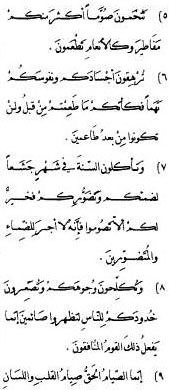 ٥) تتخمون صومًا أكثر منكم
مفاطير وكالأنعام تطعمون.
٦) ترهقون أجسادكم ونفوسكم
نهمًا فكأنكم ما طعمتم من قبل ولن
تكونوا من بعد طاعمين.
٧) وتأكلون السنة في شهر جشعًا
لضمئكم وتضوركم فخير
لكم ألا تصوموا فإنه لا أجر للضماء
والمتضورين.
٨) وتكلحون وجوهكم وتصعرون
خدودكم للناس لتظهروا صائمين إنما
يفعل ذلك القوم المنافقون.
٩) إنما الصيام الحق صيام القلب واللسان